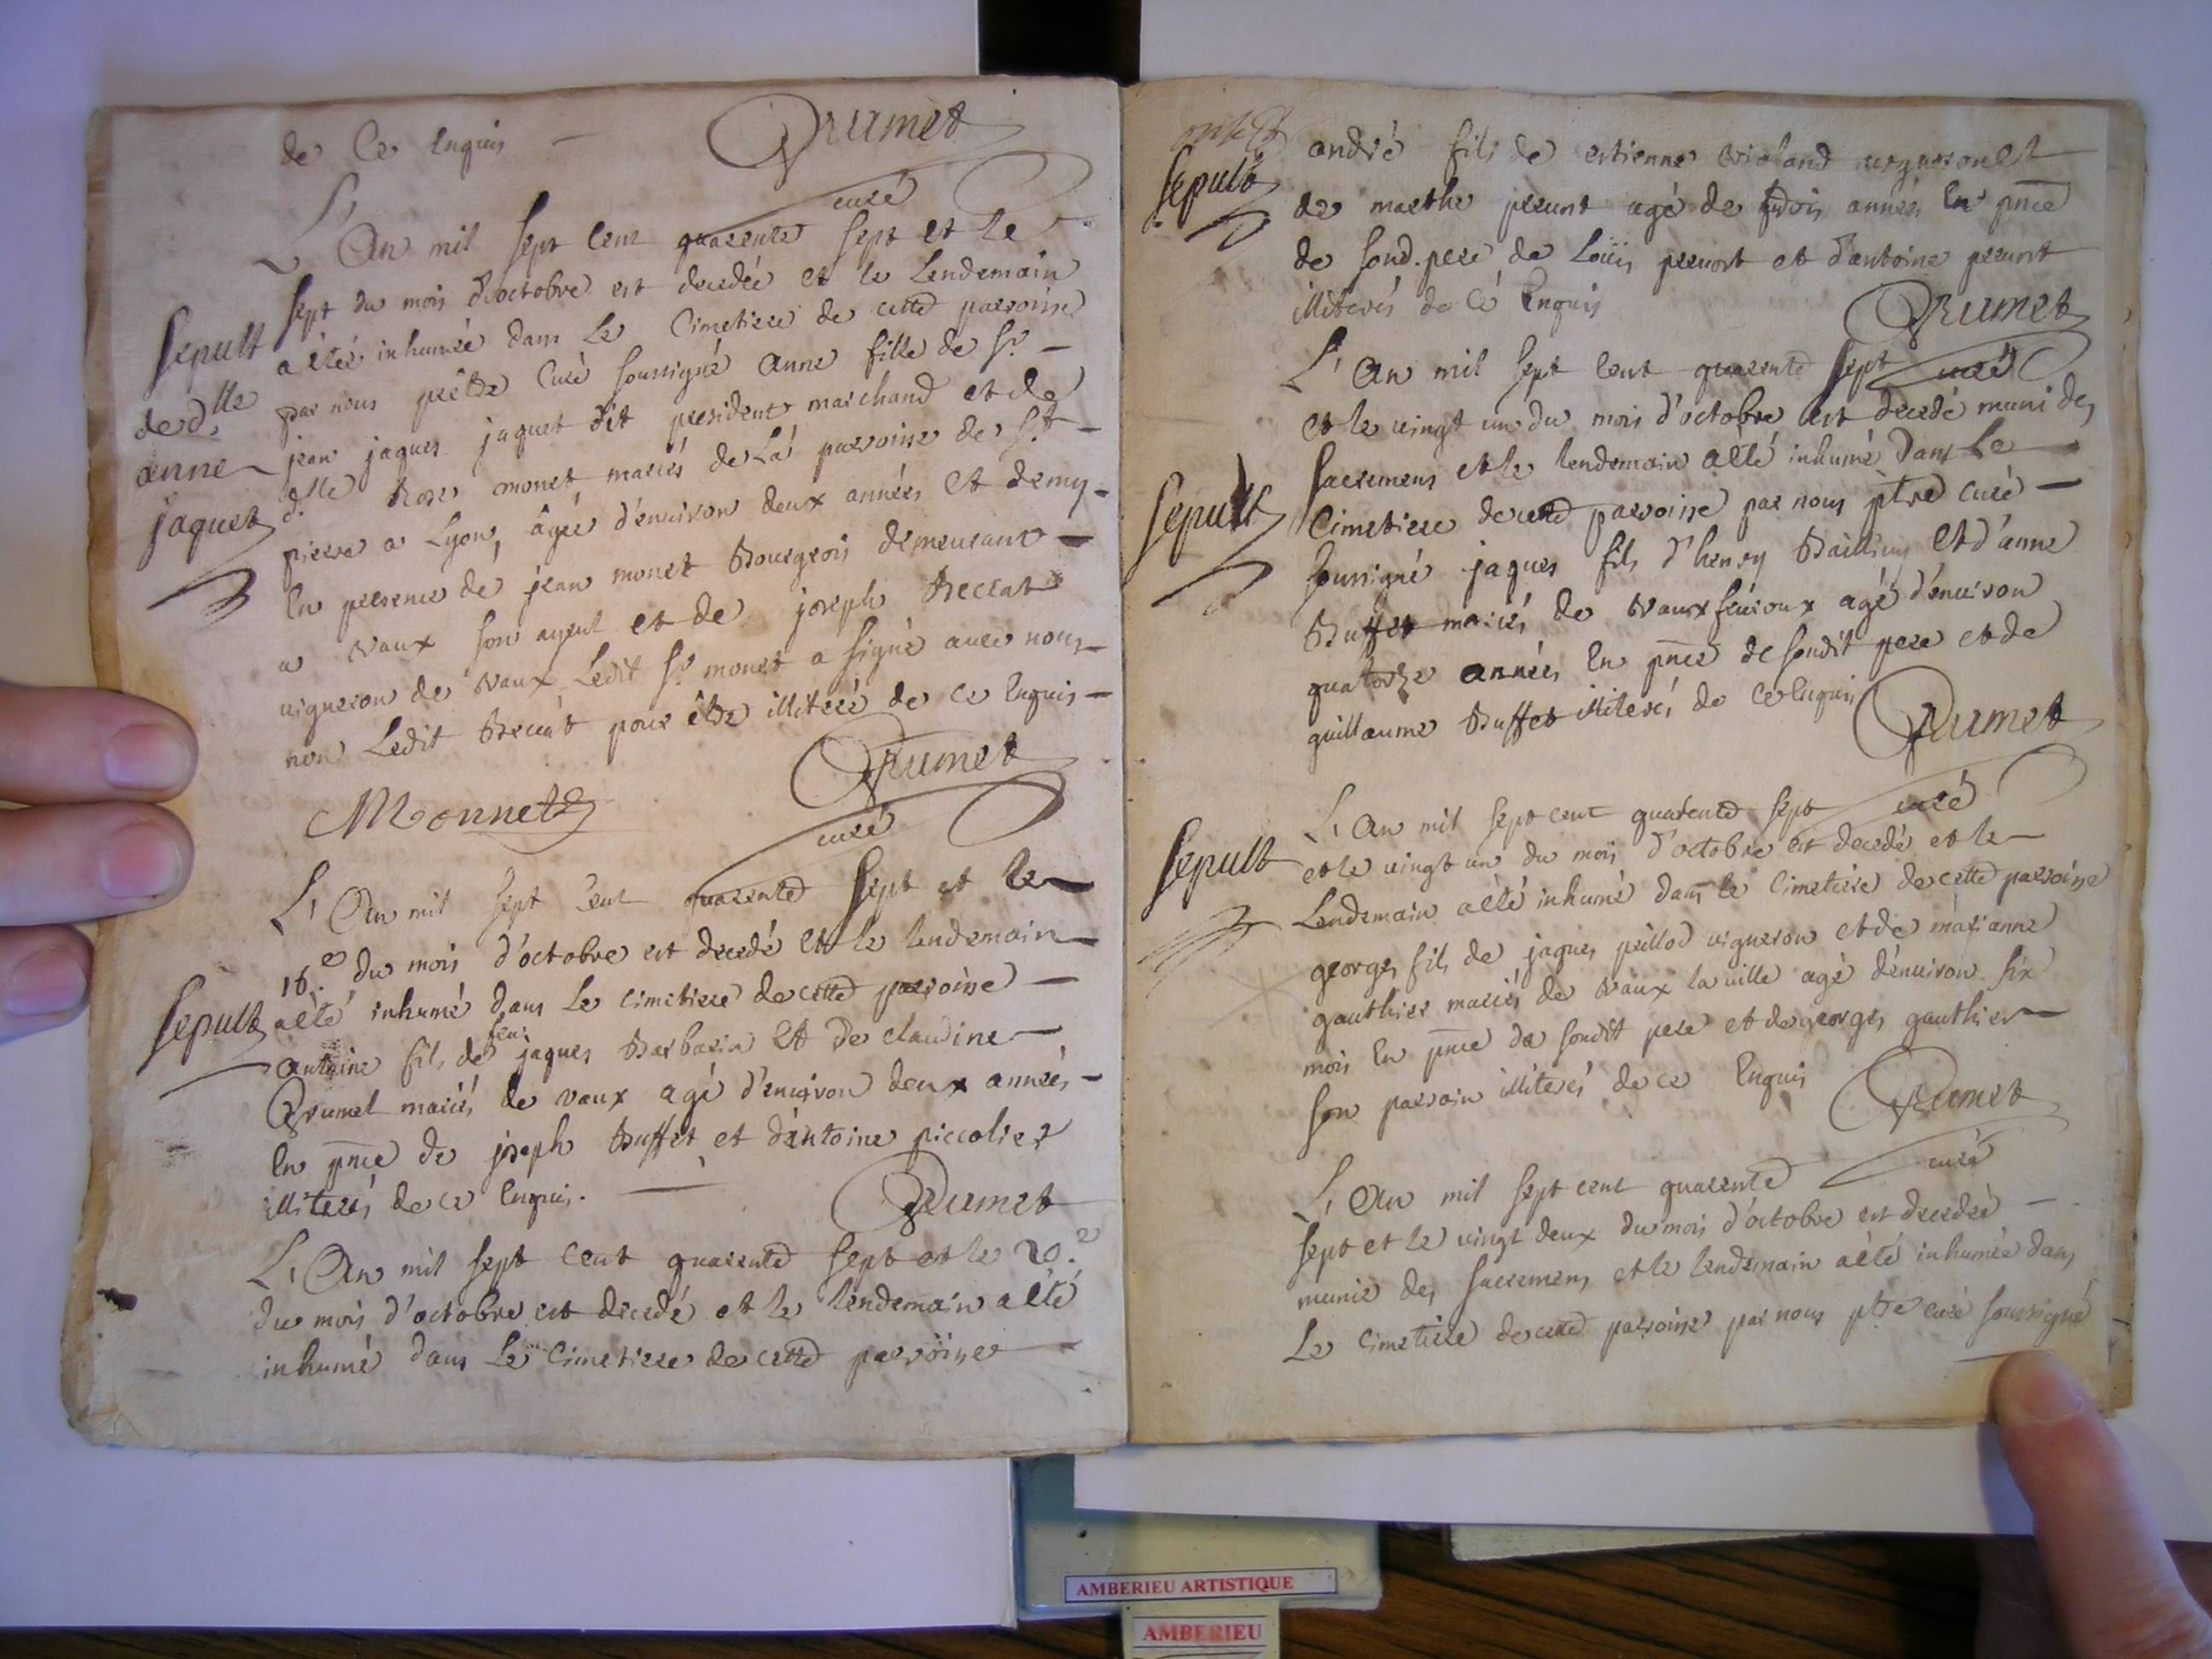 de Ce Enquis —
Brumet
curé
L'An mil sept Cent quarente sept et le
sept du mois d'octobre est decedée et le Lendemain
a été inhumée dans Le Cimetiere de cette parroisse
par nous prêtre Curé soussigné Anne fille de Sr. —
jean jaques jaquet dit president marchand et de
dlle Rose monet mariés de La parroisse de St. —
pierre a Lyon, âgée d'environ deux années et demy —
En presence de jean monet Bourgeois demeurant —
a Vaux son ayeul et de joseph
vigneron de Vaux Ledit Sr. monet a signé avec nous —
non Ledit pour être illiteré de ce Enquis —
Sepult
de dlle
anne
jaquet
Monnet
Brumet
curé
L'An mil sept Cent quarente sept et le
16e. du mois d'octobre est decedé et le lendemain
Sepult
a été inhumé dans Le cimetiere de cette parroisse —
antoine fils de feu jaques Barbarin et de claudine —
Brumet mariés de vaux agé d'environ deux années —
En pnce de joseph Buffet et d'antoine piccolier
illiterés de ce Enquis. —
Brumet
L'An mil sept cent quarente sept et le 20.e
du mois d'octobre est decedé et le lendemain a été
inhumé dans Le Cimetiere de cette parroisse —
Sepult
andré fils de estienne vigneron et
de marthe agé de trois années En pnce
de sond. pere de Loüis et d'antoine
illiterés de Cé Enquis
Brumet
curé
L'An mil sept cent quarente sept
et le vingt un du mois d'octobre est decedé muni des
Sacremens et le lendemain a été inhumé dans Le —
Sepult
Cimetiere de cette parroisse par nous ptre curé —
soussigné jaques fils d'henry et d'anne
Buffet mariés de Vauxfevroux agé d'environ
quatorze années En pnce de sondit pere et de
guillaume Buffet illiterés de ce Enquis
Brumet
curé
L'An mil sept cent quarente sept
et le vingt un du mois d'octobre est decedé et le —
Sepult
Lendemain a été inhumé dans le Cimetiere de cette parroisse
georges fils de jaques peillod vigneron et de marianne
gauthier mariés de Vaux la ville agé d'environ six
mois En pnce de sondit pere et de georges gauthier —
son parrain illiterés de ce Enquis
Brumet
curé
L'An mil sept cent quarente
sept et le vingt deux du mois d'octobre est decedée —
munie des sacremens et le lendemain a été inhumée dans
Le Cimetiere de cette parroisse par nous ptre curé soussigné
AMBERIEU ARTISTIQUE
AMBERIEU